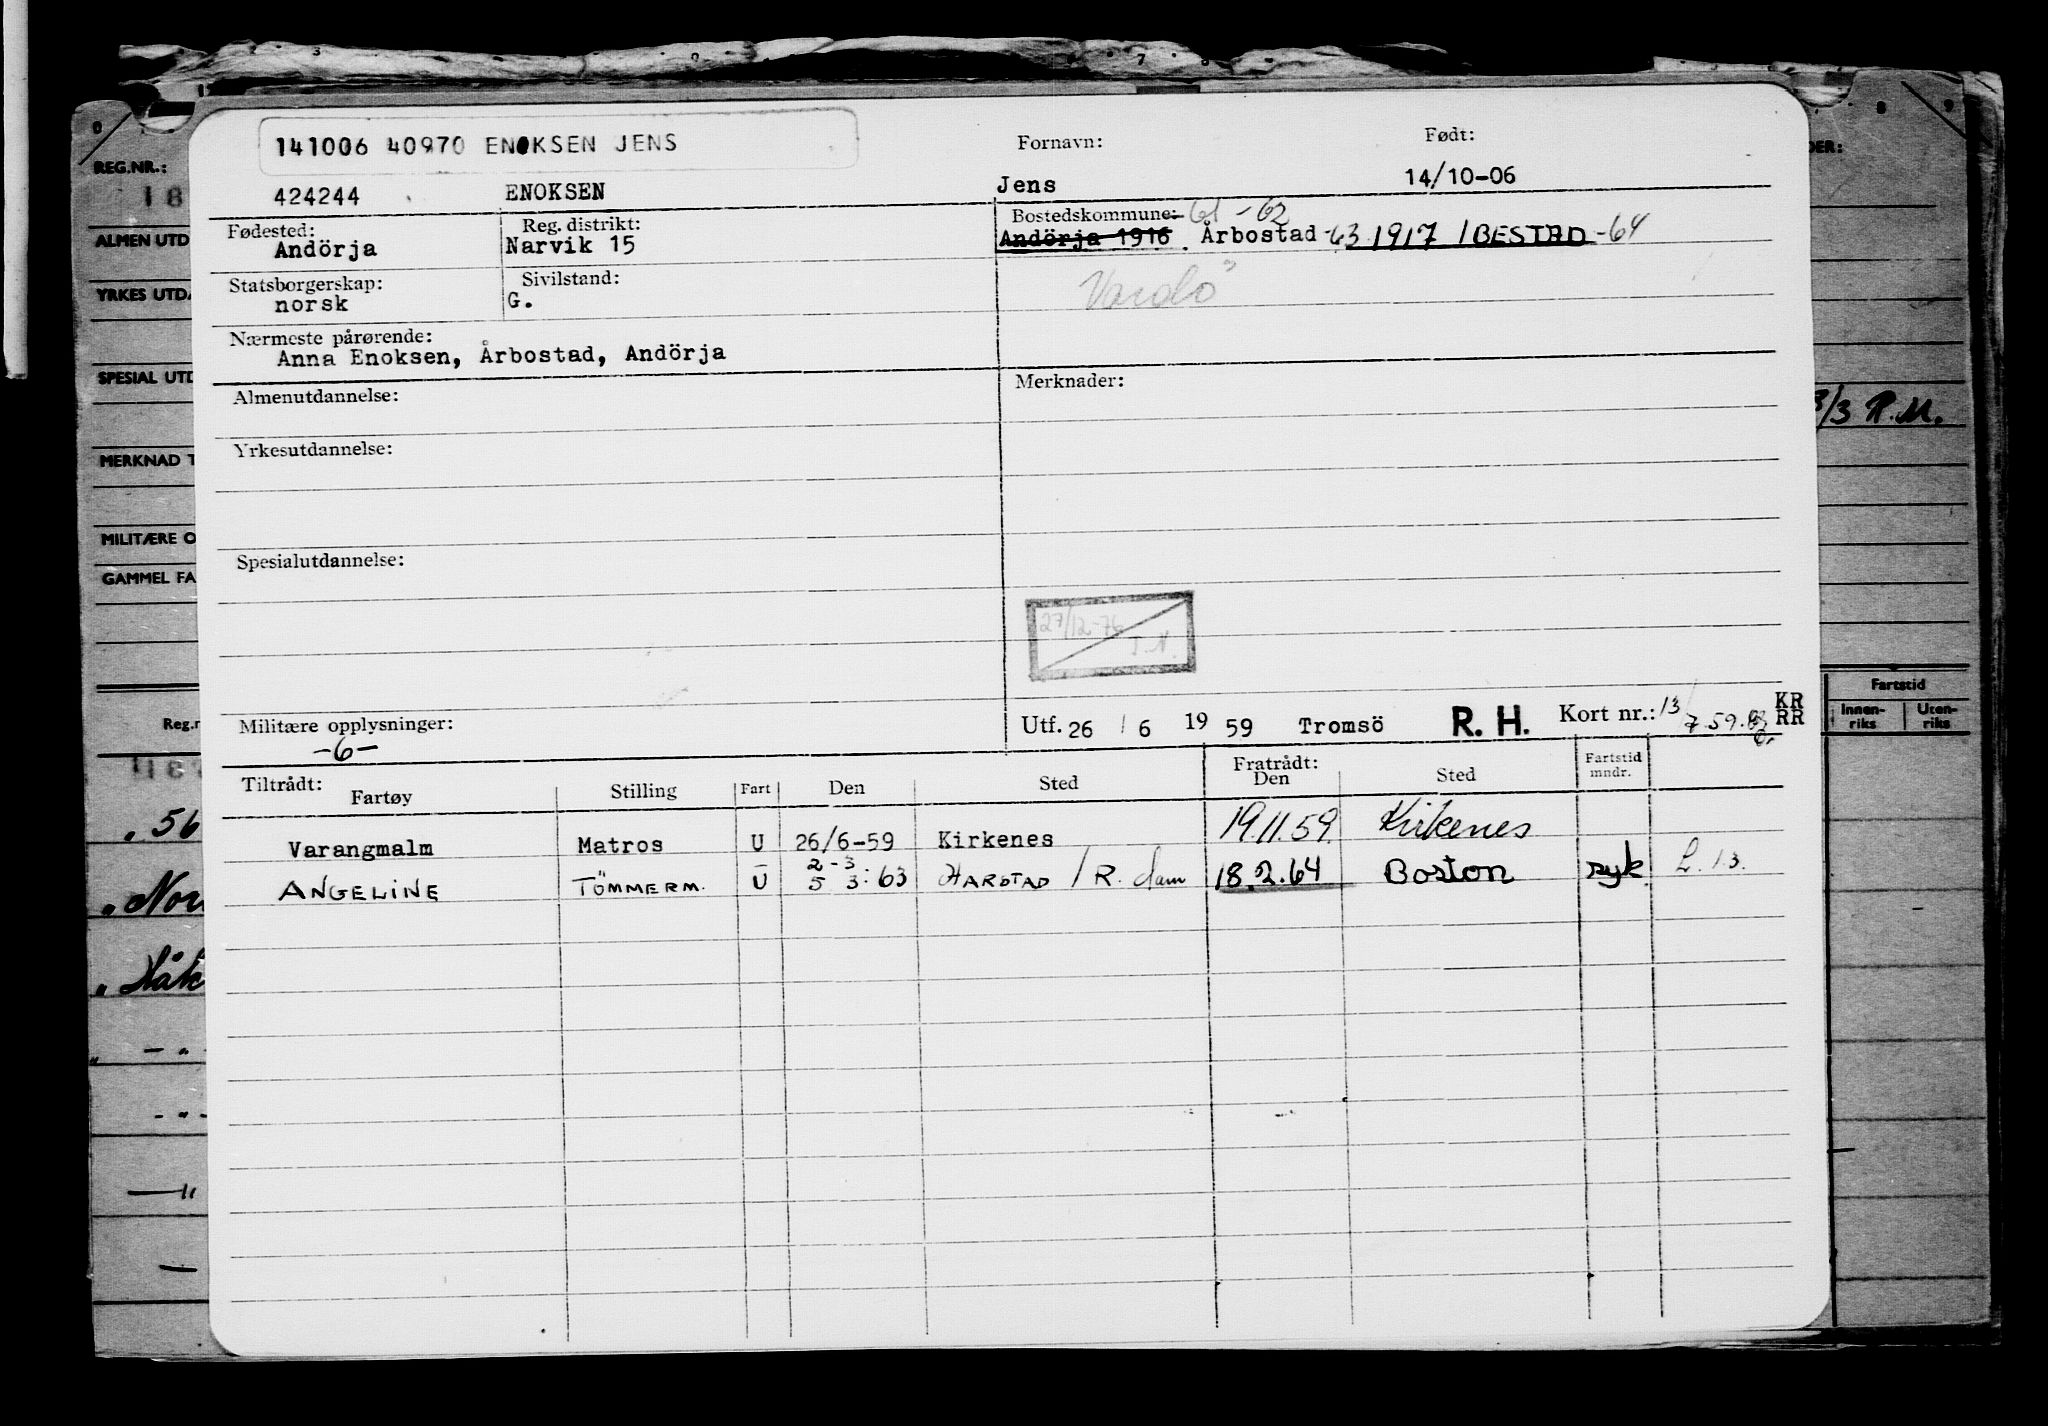 141006 40970 ENOKSEN JENS
Fornavn:
Født:
424244
ENOKSEN
Jens
14/10-06
Fødested:
Andörja
Reg. distrikt:
Narvik 15
Bostedskommune: 61-62
Andörja 1916 Årbostad -63 1917 IBESTAD -64
Statsborgerskap:
norsk
Sivilstand:
G.
Vardö
Nærmeste pårørende:
Anna Enoksen, Årbostad, Andörja
Almenutdannelse:
Merknader:
Yrkesutdannelse:
Spesialutdannelse:
27/12-76
T.N.
Militære opplysninger:
-6-
Utf. 26 / 6 19 59 Tromsö R. H. Kort nr.: 13/
7.59.
KR
RR
Tiltrådt:
Fartøy Stilling Fart Den Sted Fratrådt: Den Sted Fartstid mndr.
Varangmalm Matros U 26/6-59 Kirkenes 19.11.59. Kirkenes
2-3
ANGELINE TÖMMERM. U 5 3.63 HARSTAD / R.dam 18.2.64 Boston syk L.13.
REG.NR.:
18
ALMEN UTD
YRKES UTDA
SPESIAL UTD
MERKNAD T
MILITÆRE O
GAMMEL FA
Reg.n
56
Nor
Håk
DER:
3/3 R.M.
Fartstid
Innen-
riks
Uten-
riks